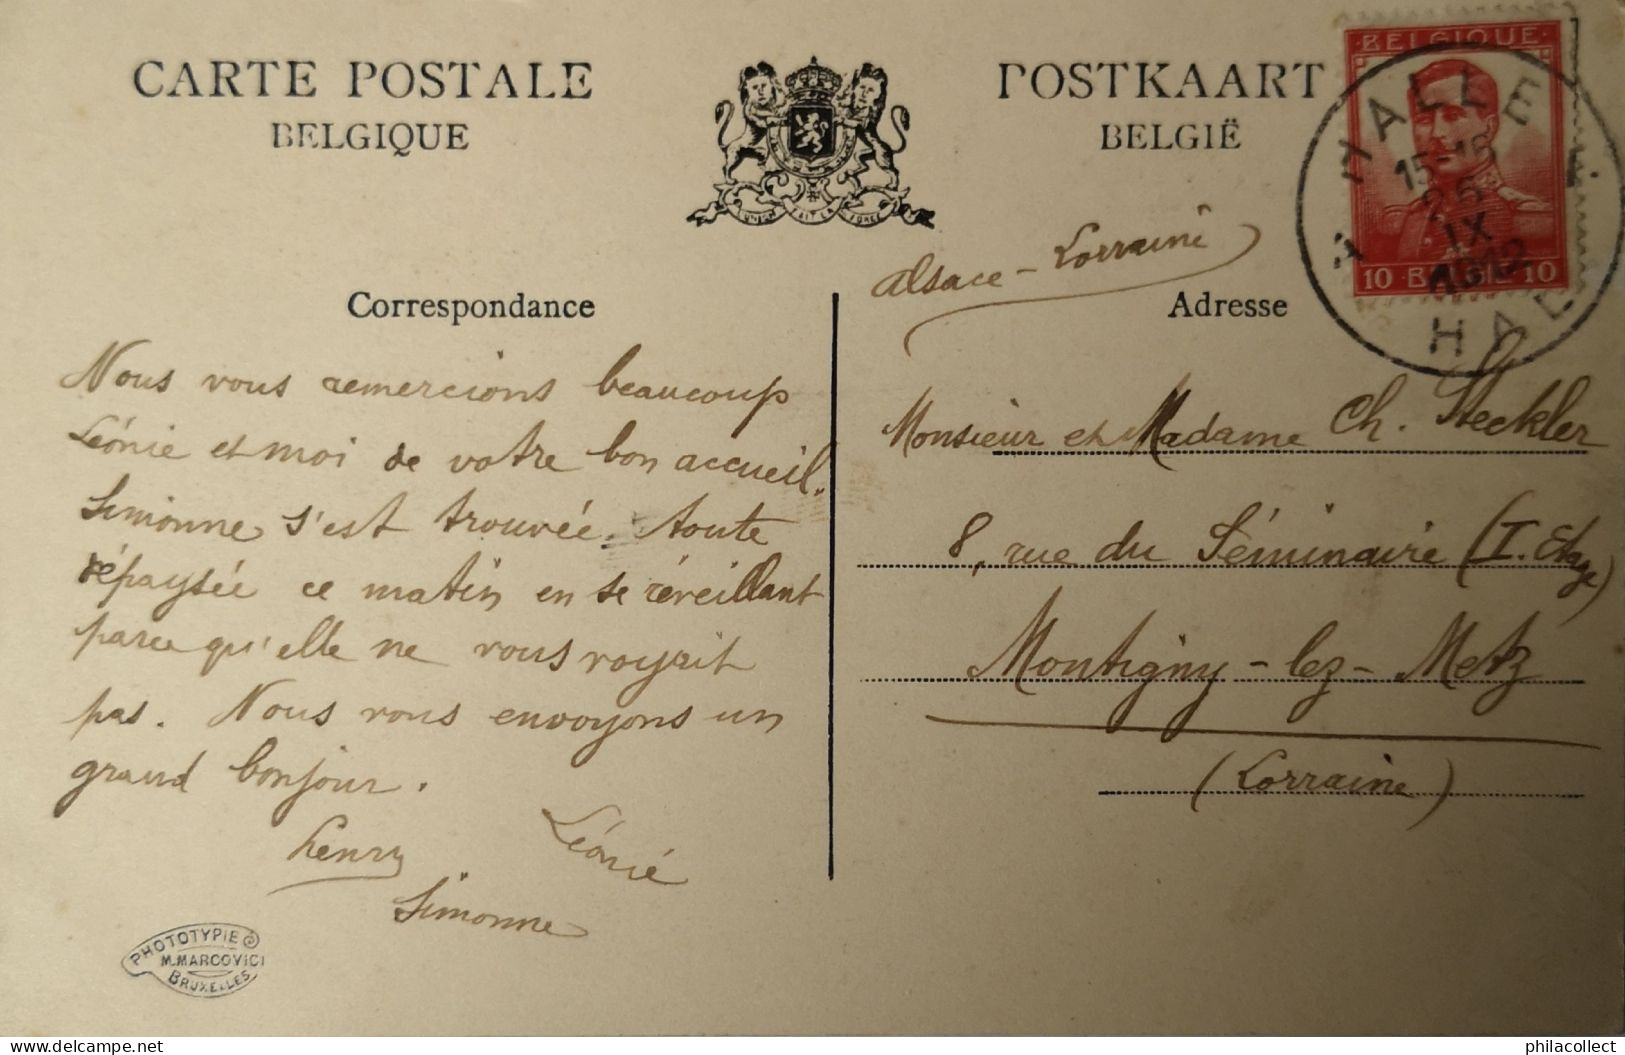 CARTE POSTALE
BELGIQUE
POSTKAART
BELGIË
L'UNION FAIT LA FORCE
BELGIQUE
10 BELGIË 10
HALLE
15-16
26
IX
1912
HAL
Correspondance
Nous vous remercions beaucoup
Léonie et moi de votre bon accueil.
Simonne s'est trouvée toute
dépaysée ce matin en se réveillant
parce qu'elle ne vous voyait
pas. Nous vous envoyons un
grand bonjour.
henry Léonie
Simonne
PHOTOTYPIE
M. MARCOVICI
BRUXELLES
Alsace-Lorraine
Adresse
Monsieur et Madame Ch. Steckler
8, rue du Séminaire (I. Etage)
Montigny-lez-Metz
(Lorraine)
philacollect